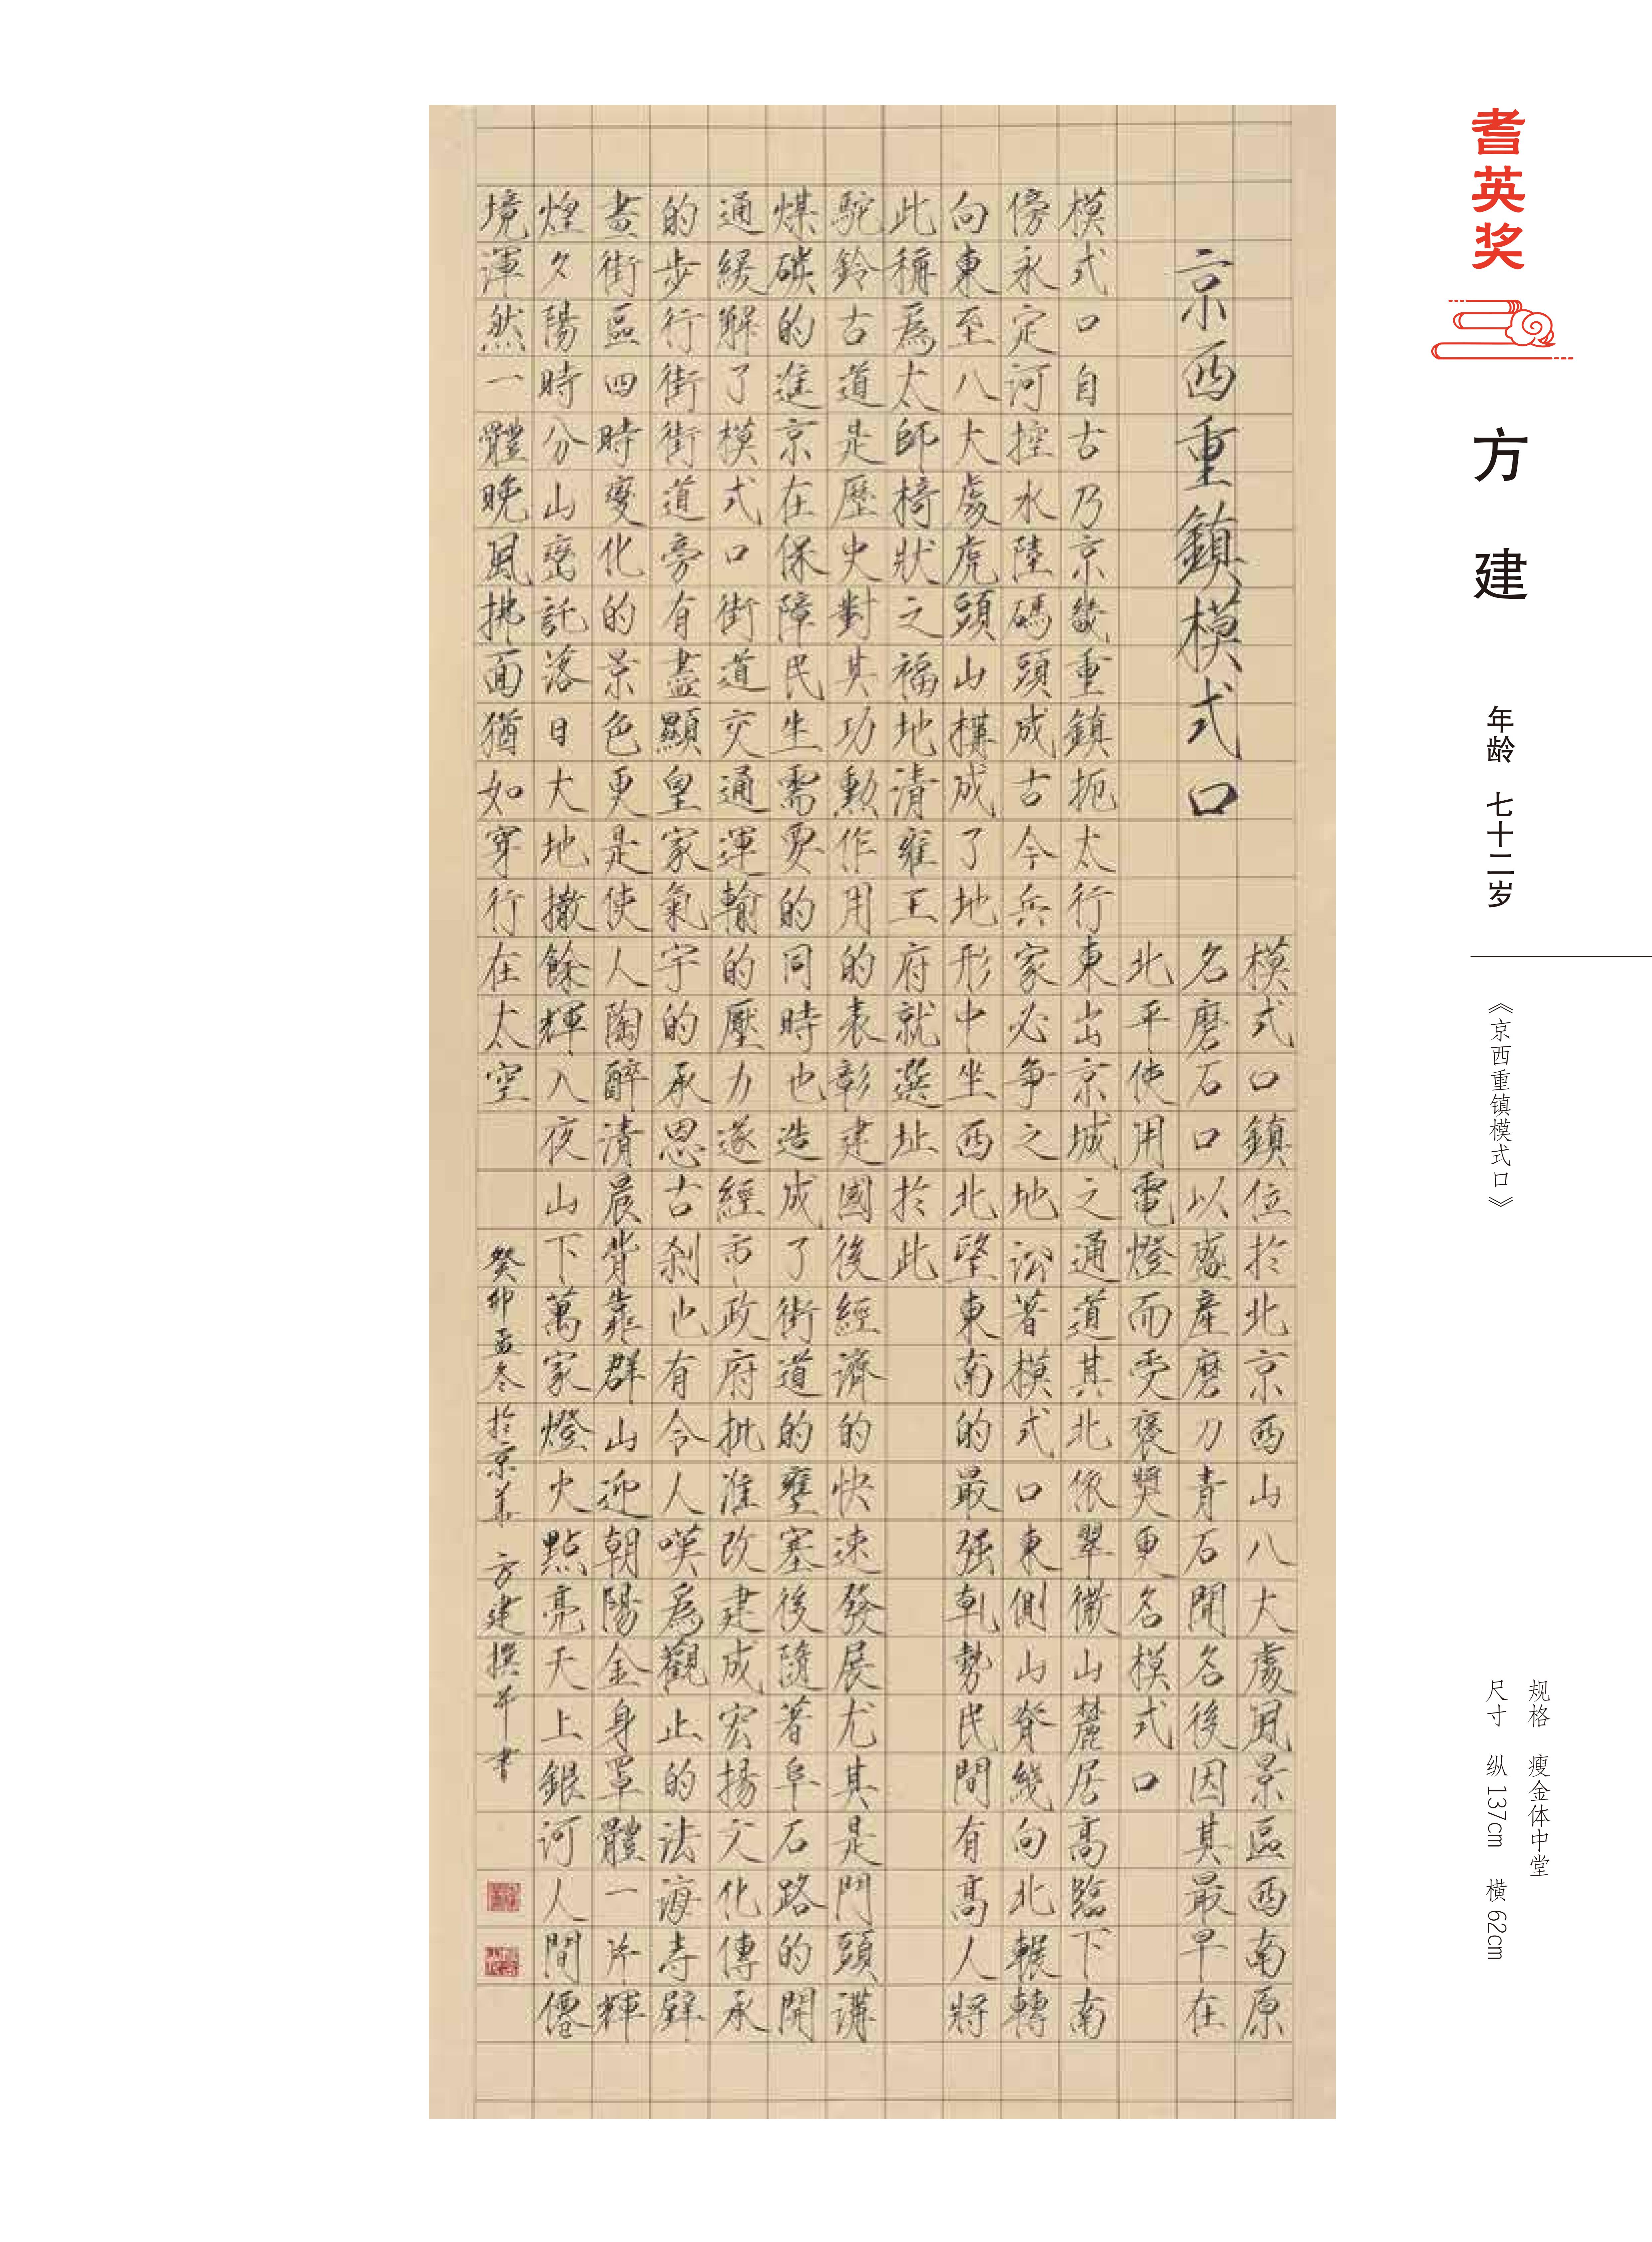 耆英奖
方建
年龄 七十二岁
《京西重镇模式口》
规格 瘦金体中堂
尺寸 纵137cm 横62cm
京西重鎮模式口
模式口鎮位於北京西山八大處風景區西南原
名磨石口以盛產磨刀青石聞名後因其最早在
北平使用電燈而受褒獎更名模式口
模式口自古乃京畿重鎮扼太行東出京城之通道其北依翠微山麓居高臨下南
傍永定河控水陸碼頭成古今兵家必争之地沿著模式口東側山脊繞向北輾轉
向東至八大處虎頭山構成了地形中坐西北望東南的最强乾勢民間有高人將
此稱爲太師椅狀之福地清雍王府就選址於此
駝鈴古道是歷史對其功勳作用的表彰建國後經濟的快速發展尤其是門頭溝
煤碳的進京在保障民生需要的同時也造成了街道的壅塞後隨著阜石路的開
通緩解了模式口街道交通運輸的壓力遂經市政府批准改建成宏揚文化傳承
的步行街街道旁有盡顯皇家氣宇的承恩古刹也有令人嘆爲觀止的法海寺壁
畫街區四時變化的景色更是使人陶醉清晨背靠群山迎朝陽金身罩體一片輝
煌夕陽時分山巒託落日大地撒餘輝入夜山下萬家燈火點亮天上銀河人間僊
境渾然一體晚風拂面猶如穿行在太空
癸卯孟冬於京華 方建撰并書